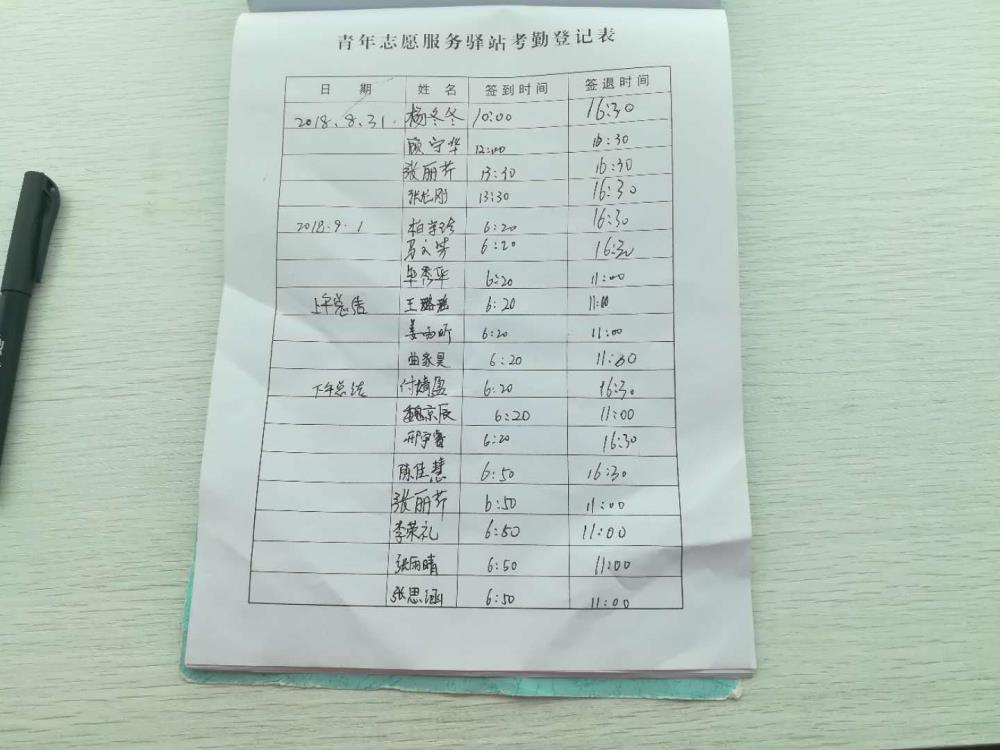 青年志愿服务驿站考勤登记表
日 期 姓 名 签到时间 签退时间
2018.8.31. 杨冬冬 10:00 16:30
顾守华 12:00 16:30
张丽芹 13:30 16:30
张龙刚 13:30 16:30
2018.9.1 柏 6:20 16:30
马文 6:20 16:30
毕秀华 6:20 11:00
上午总结 王璐瑶 6:20 11:00
姜雨昕 6:20 11:00
曲家昊 6:20 11:30
下午总结 付婧盈 6:20 16:30
魏京辰 6:20 11:00
邢宇睿 6:20 16:30
陈佳慧 6:50 16:30
张丽芹 6:50 11:00
李荣礼 6:50 11:00
张雨晴 6:50 11:00
张思涵 6:50 11:00